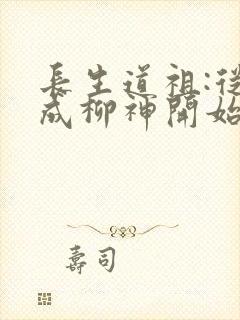 長生道祖:從
成柳神開始
壽司